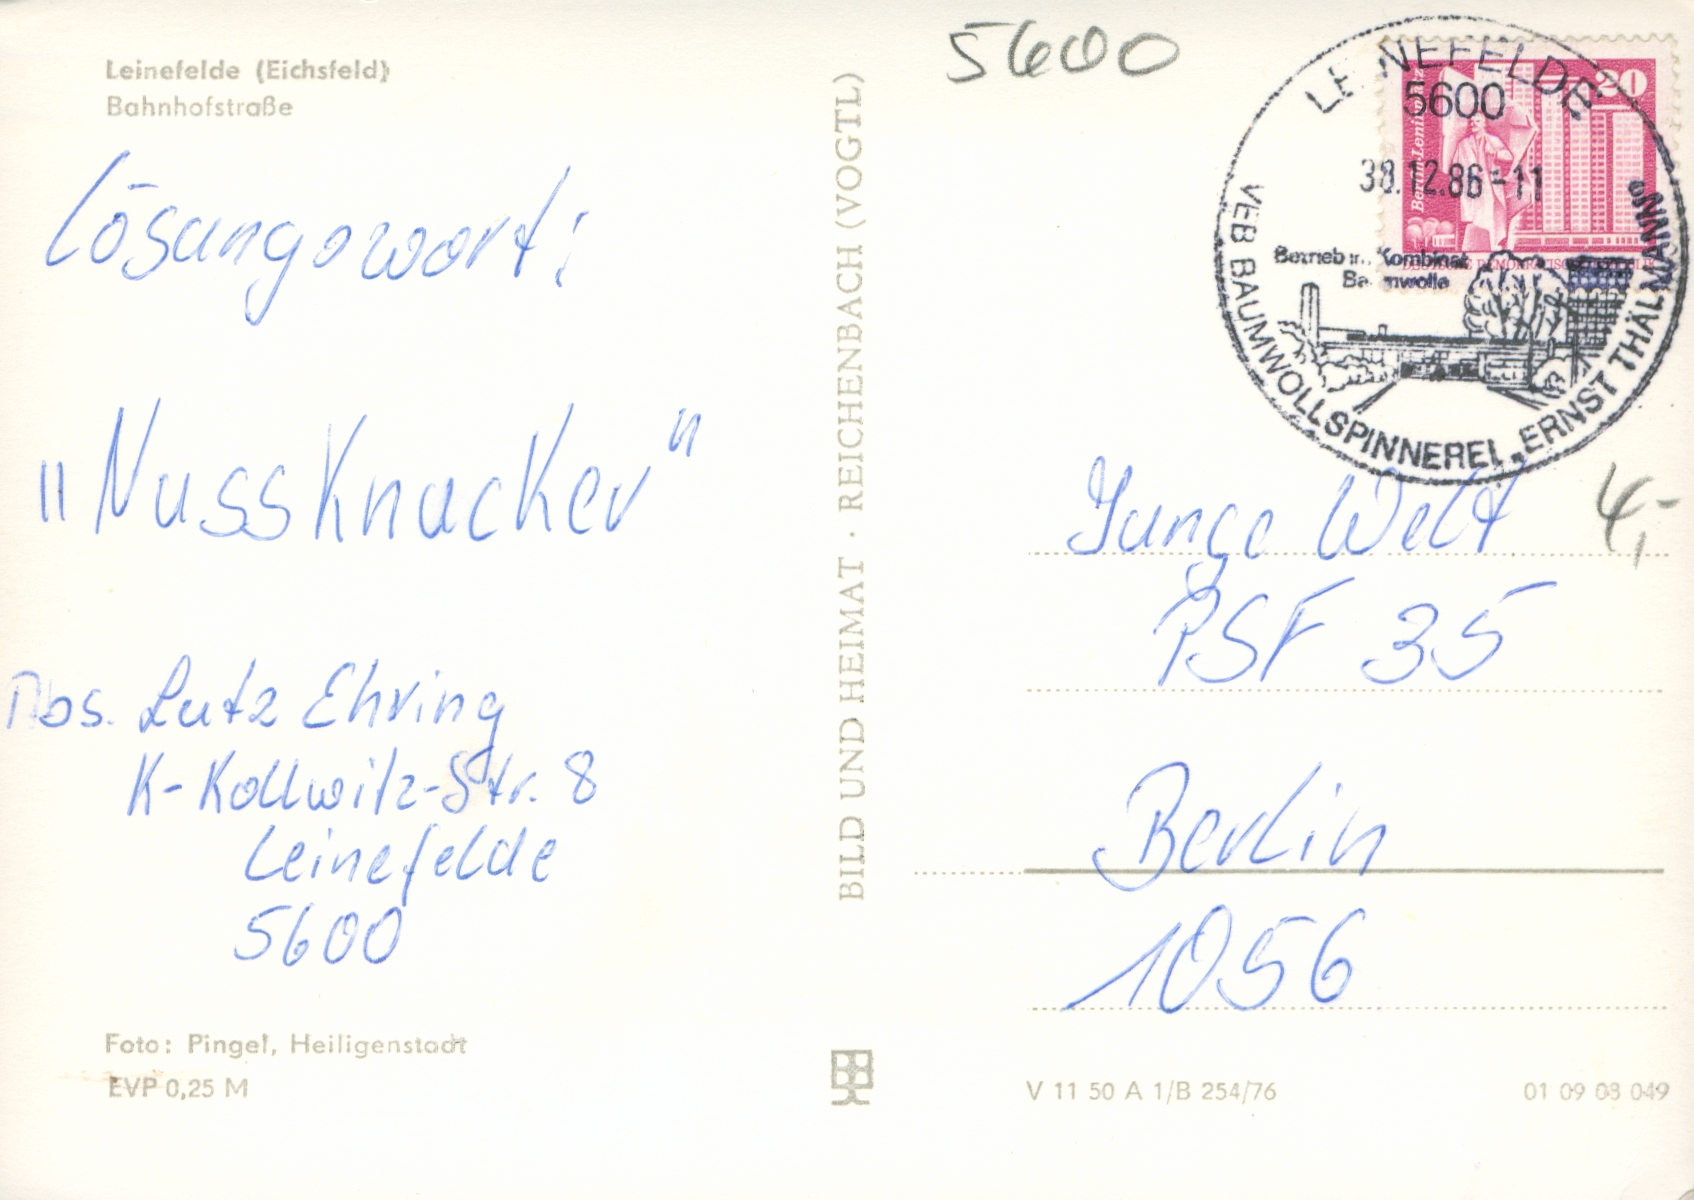 Leinefelde (Eichsfeld)
Bahnhofstraße
Lösungswort:
"Nussknacker"
Abs. Lutz Ehring
K-Kollwitz-Str. 8
Leinefelde
5600
Foto: Pingel, Heiligenstadt
EVP 0,25 M
BILD UND HEIMAT · REICHENBACH (VOGTL)
5600
LEINEFELDE
5600
30.12.86-11
Betrieb im Kombinat
Baumwolle
VEB BAUMWOLLSPINNEREI „ERNST THÄLMANN"
20
Berlin-Leninplatz
DEUTSCHE DEMOKRATISCHE REPUBLIK
Junge Welt
4,-
PSF 35
Berlin
1056
V 11 50 A 1/B 254/76
01 09 08 049